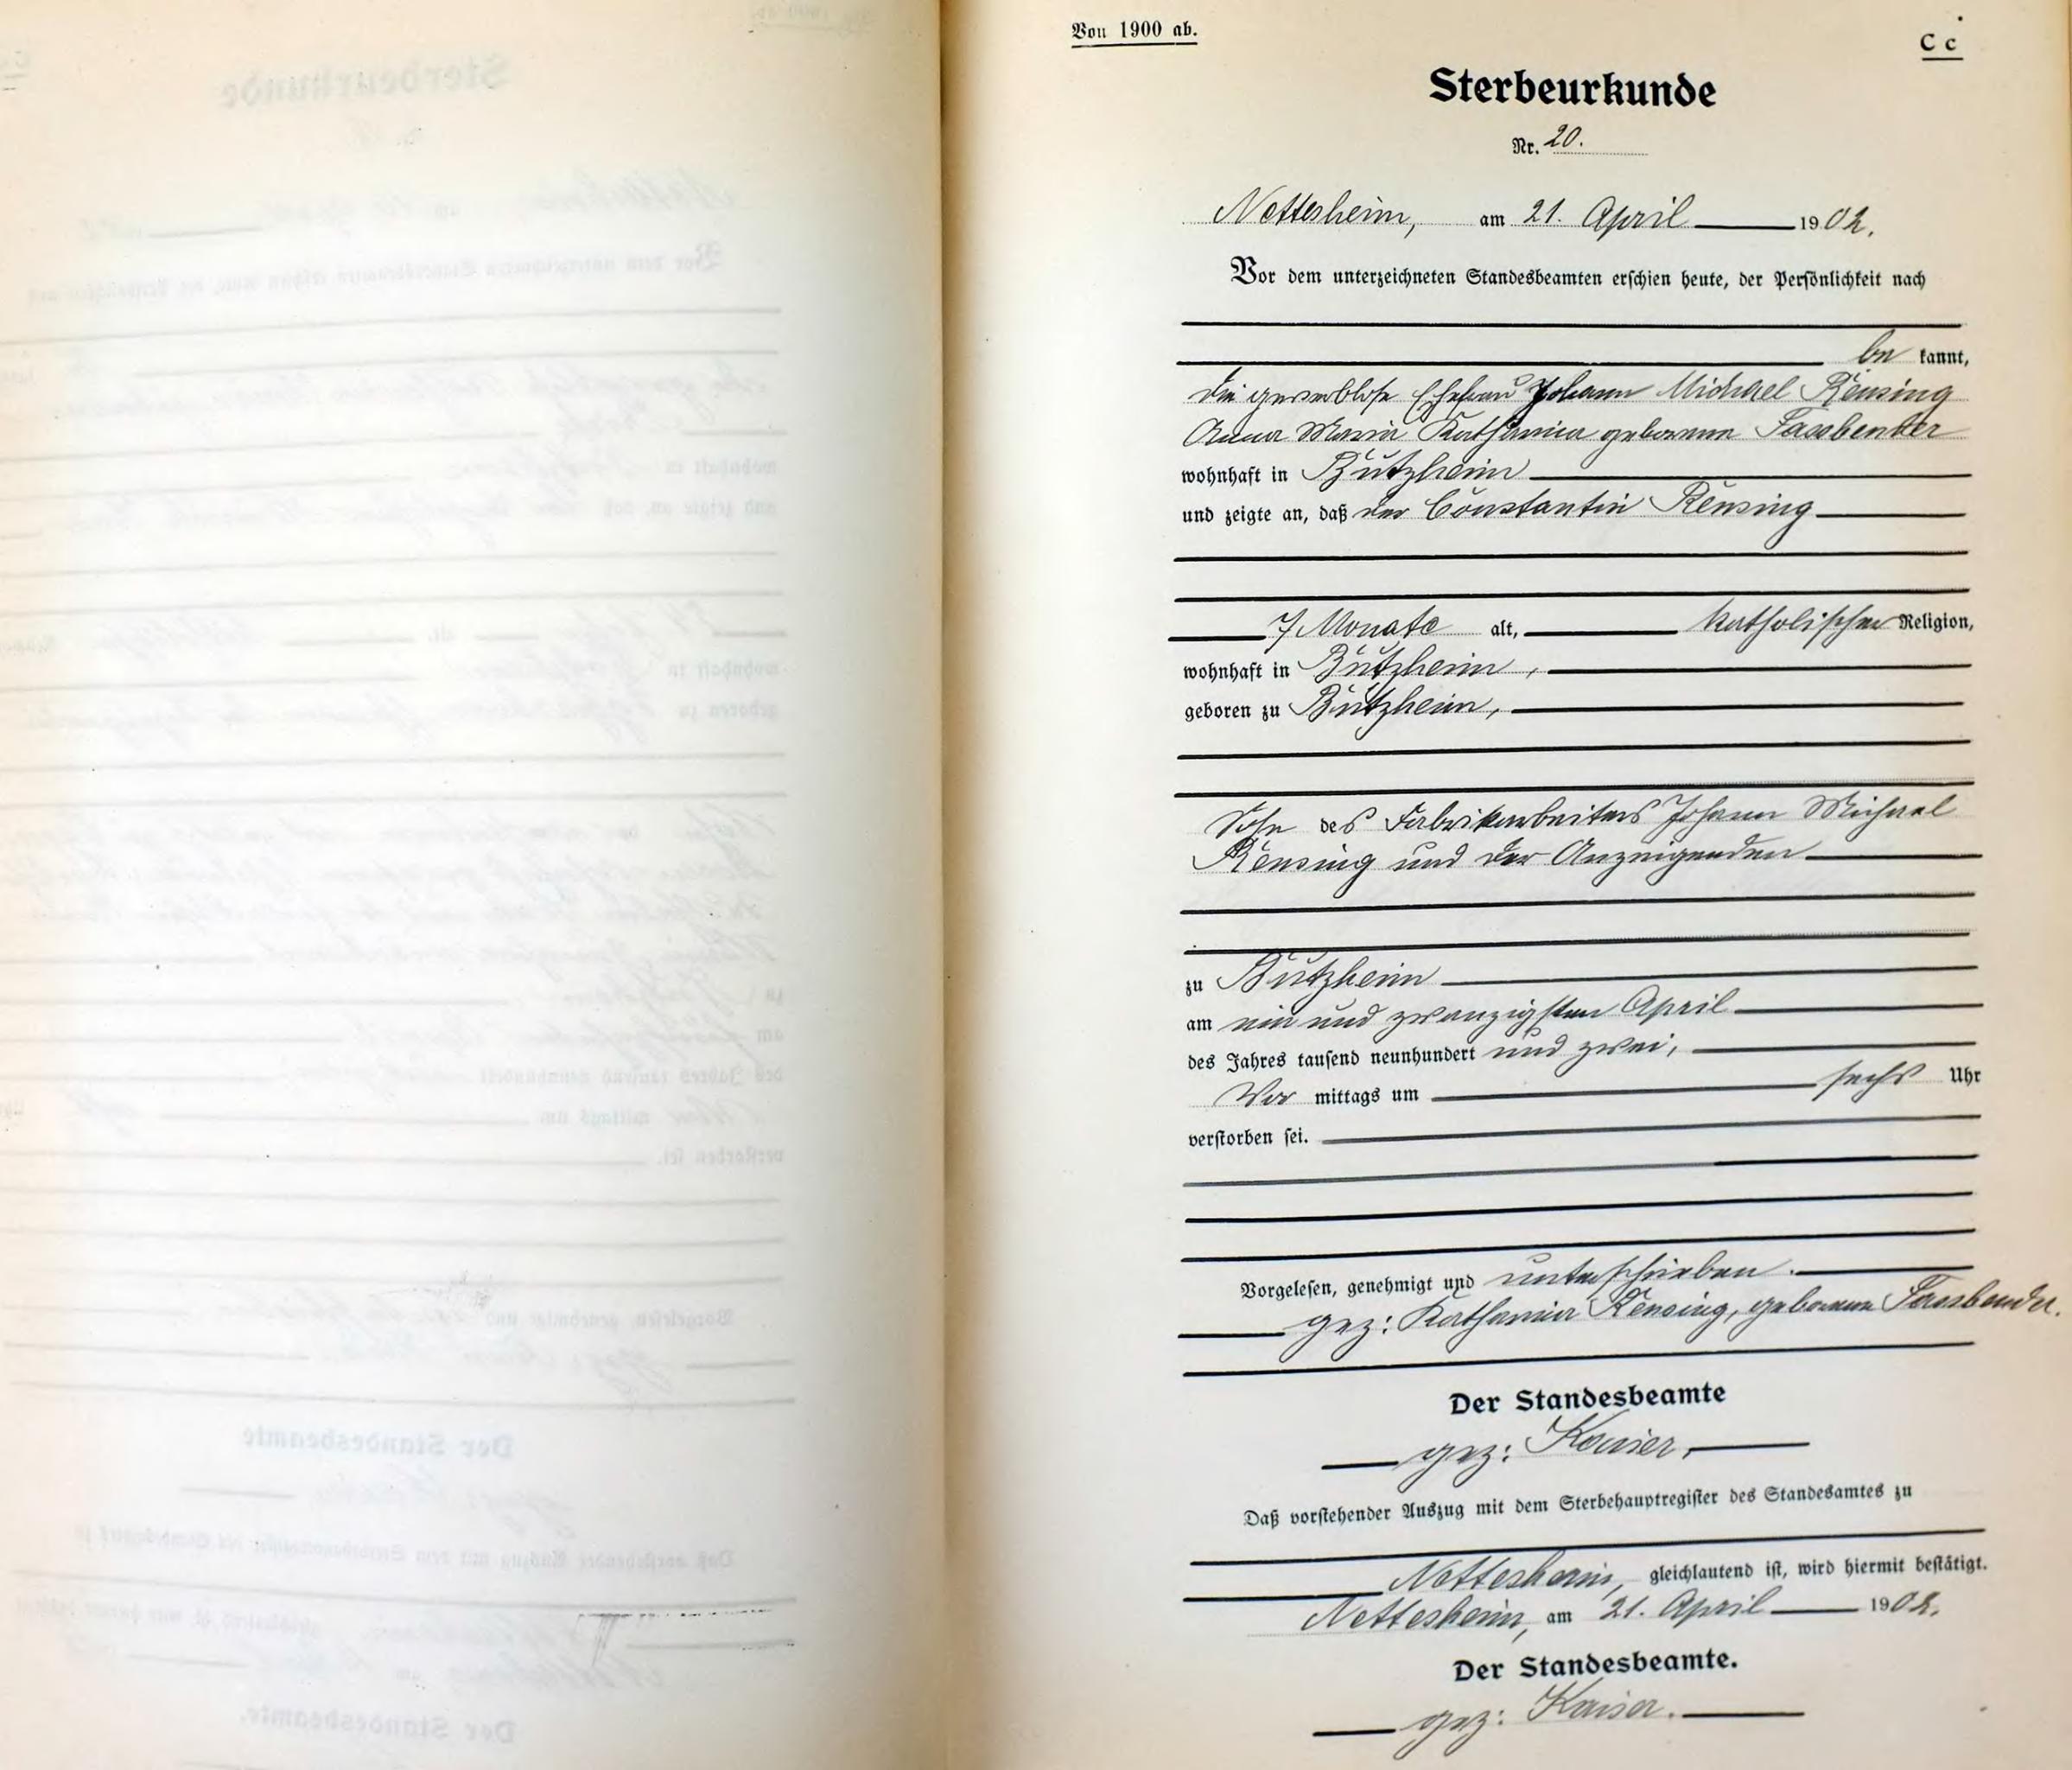 Von 1900 ab.
C c
Sterbeurkunde
Nr. 20.
Nettesheim, am 21. April 1902.
Vor dem unterzeichneten Standesbeamten erschien heute, der Persönlichkeit nach
be kannt,
die gewerblose Ehefrau Johann Michael Rensing
Anna Maria Katharina geborene Fassbender
wohnhaft in Butzheim
und zeigte an, daß der Constantin Rensing
7 Monate alt, katholischer Religion,
wohnhaft in Butzheim,
geboren zu Butzheim,
Sohn des Fabrikarbeiters Johann Michael
Rensing und der Anzeigenden
zu Butzheim
am ein und zwanzigsten April
des Jahres tausend neunhundert und zwei,
Vor mittags um sechs Uhr
verstorben sei.
Vorgelesen, genehmigt und unterschrieben.
gez: Katharina Rensing, geborene Fassbender.
Der Standesbeamte
gez: Kaiser,
Daß vorstehender Auszug mit dem Sterbehauptregister des Standesamtes zu
Nettesheim, gleichlautend ist, wird hiermit bestätigt.
Nettesheim, am 21. April 1902.
Der Standesbeamte.
gez: Kaiser.